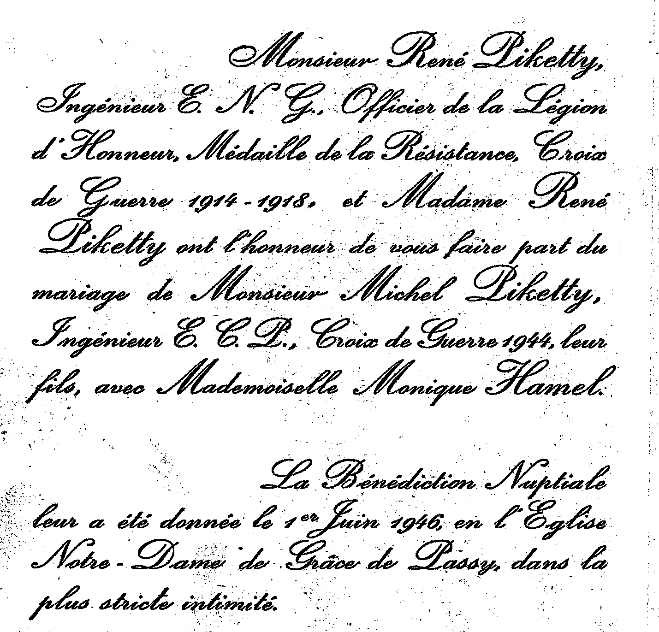 Monsieur René Piketty,
Ingénieur E. N. G., Officier de la Légion
d'Honneur, Médaille de la Résistance, Croix
de Guerre 1914-1918, et Madame René
Piketty ont l'honneur de vous faire part du
mariage de Monsieur Michel Piketty,
Ingénieur E. C. P., Croix de Guerre 1944, leur
fils, avec Mademoiselle Monique Hamel.
La Bénédiction Nuptiale
leur a été donnée le 1er Juin 1946, en l'Eglise
Notre-Dame de Grâce de Passy, dans la
plus stricte intimité.